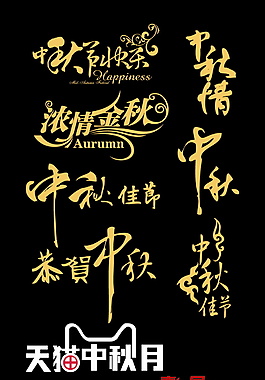 中秋节快乐
Happiness
Mid-Autumn Festival
浓情金秋
Aurumn
中秋佳節
恭賀中秋
天猫中秋月
中秋情
中秋
中秋佳节